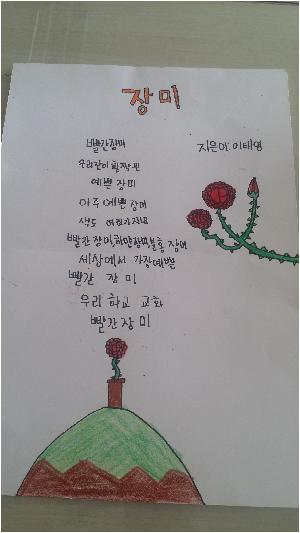 장미
지은이: 이태영
빨간장미
우리같이 활짝 핀
예쁜 장미
아주 예쁜 장미
색도 여러가지
빨간장미,하얀장미,분홍 장미
세상에서 가장예쁜
빨간 장미
우리 학교 교화
빨간장미